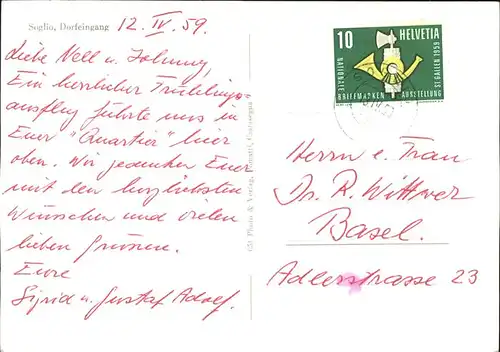 Soglio, Dorfeingang
12. IV. 59.
Liebe Nell u. Johnny,
Ein herrlicher Frühlings-
ausflug führte uns in
Euer "Quartier" hier
oben. Wir gedenken Euer
mit den herzlichsten
Wünschen und vielen
lieben Grüssen.
Eure
Sigrid u. Gustaf Adolf.
Photo & Verlag,
10 HELVETIA
NATIONALE
BRIEFMARKEN AUSSTELLUNG
ST GALLEN 1959
Herrn e. Frau
Dr. R. Wittwer
Basel.
Adlerstrasse 23